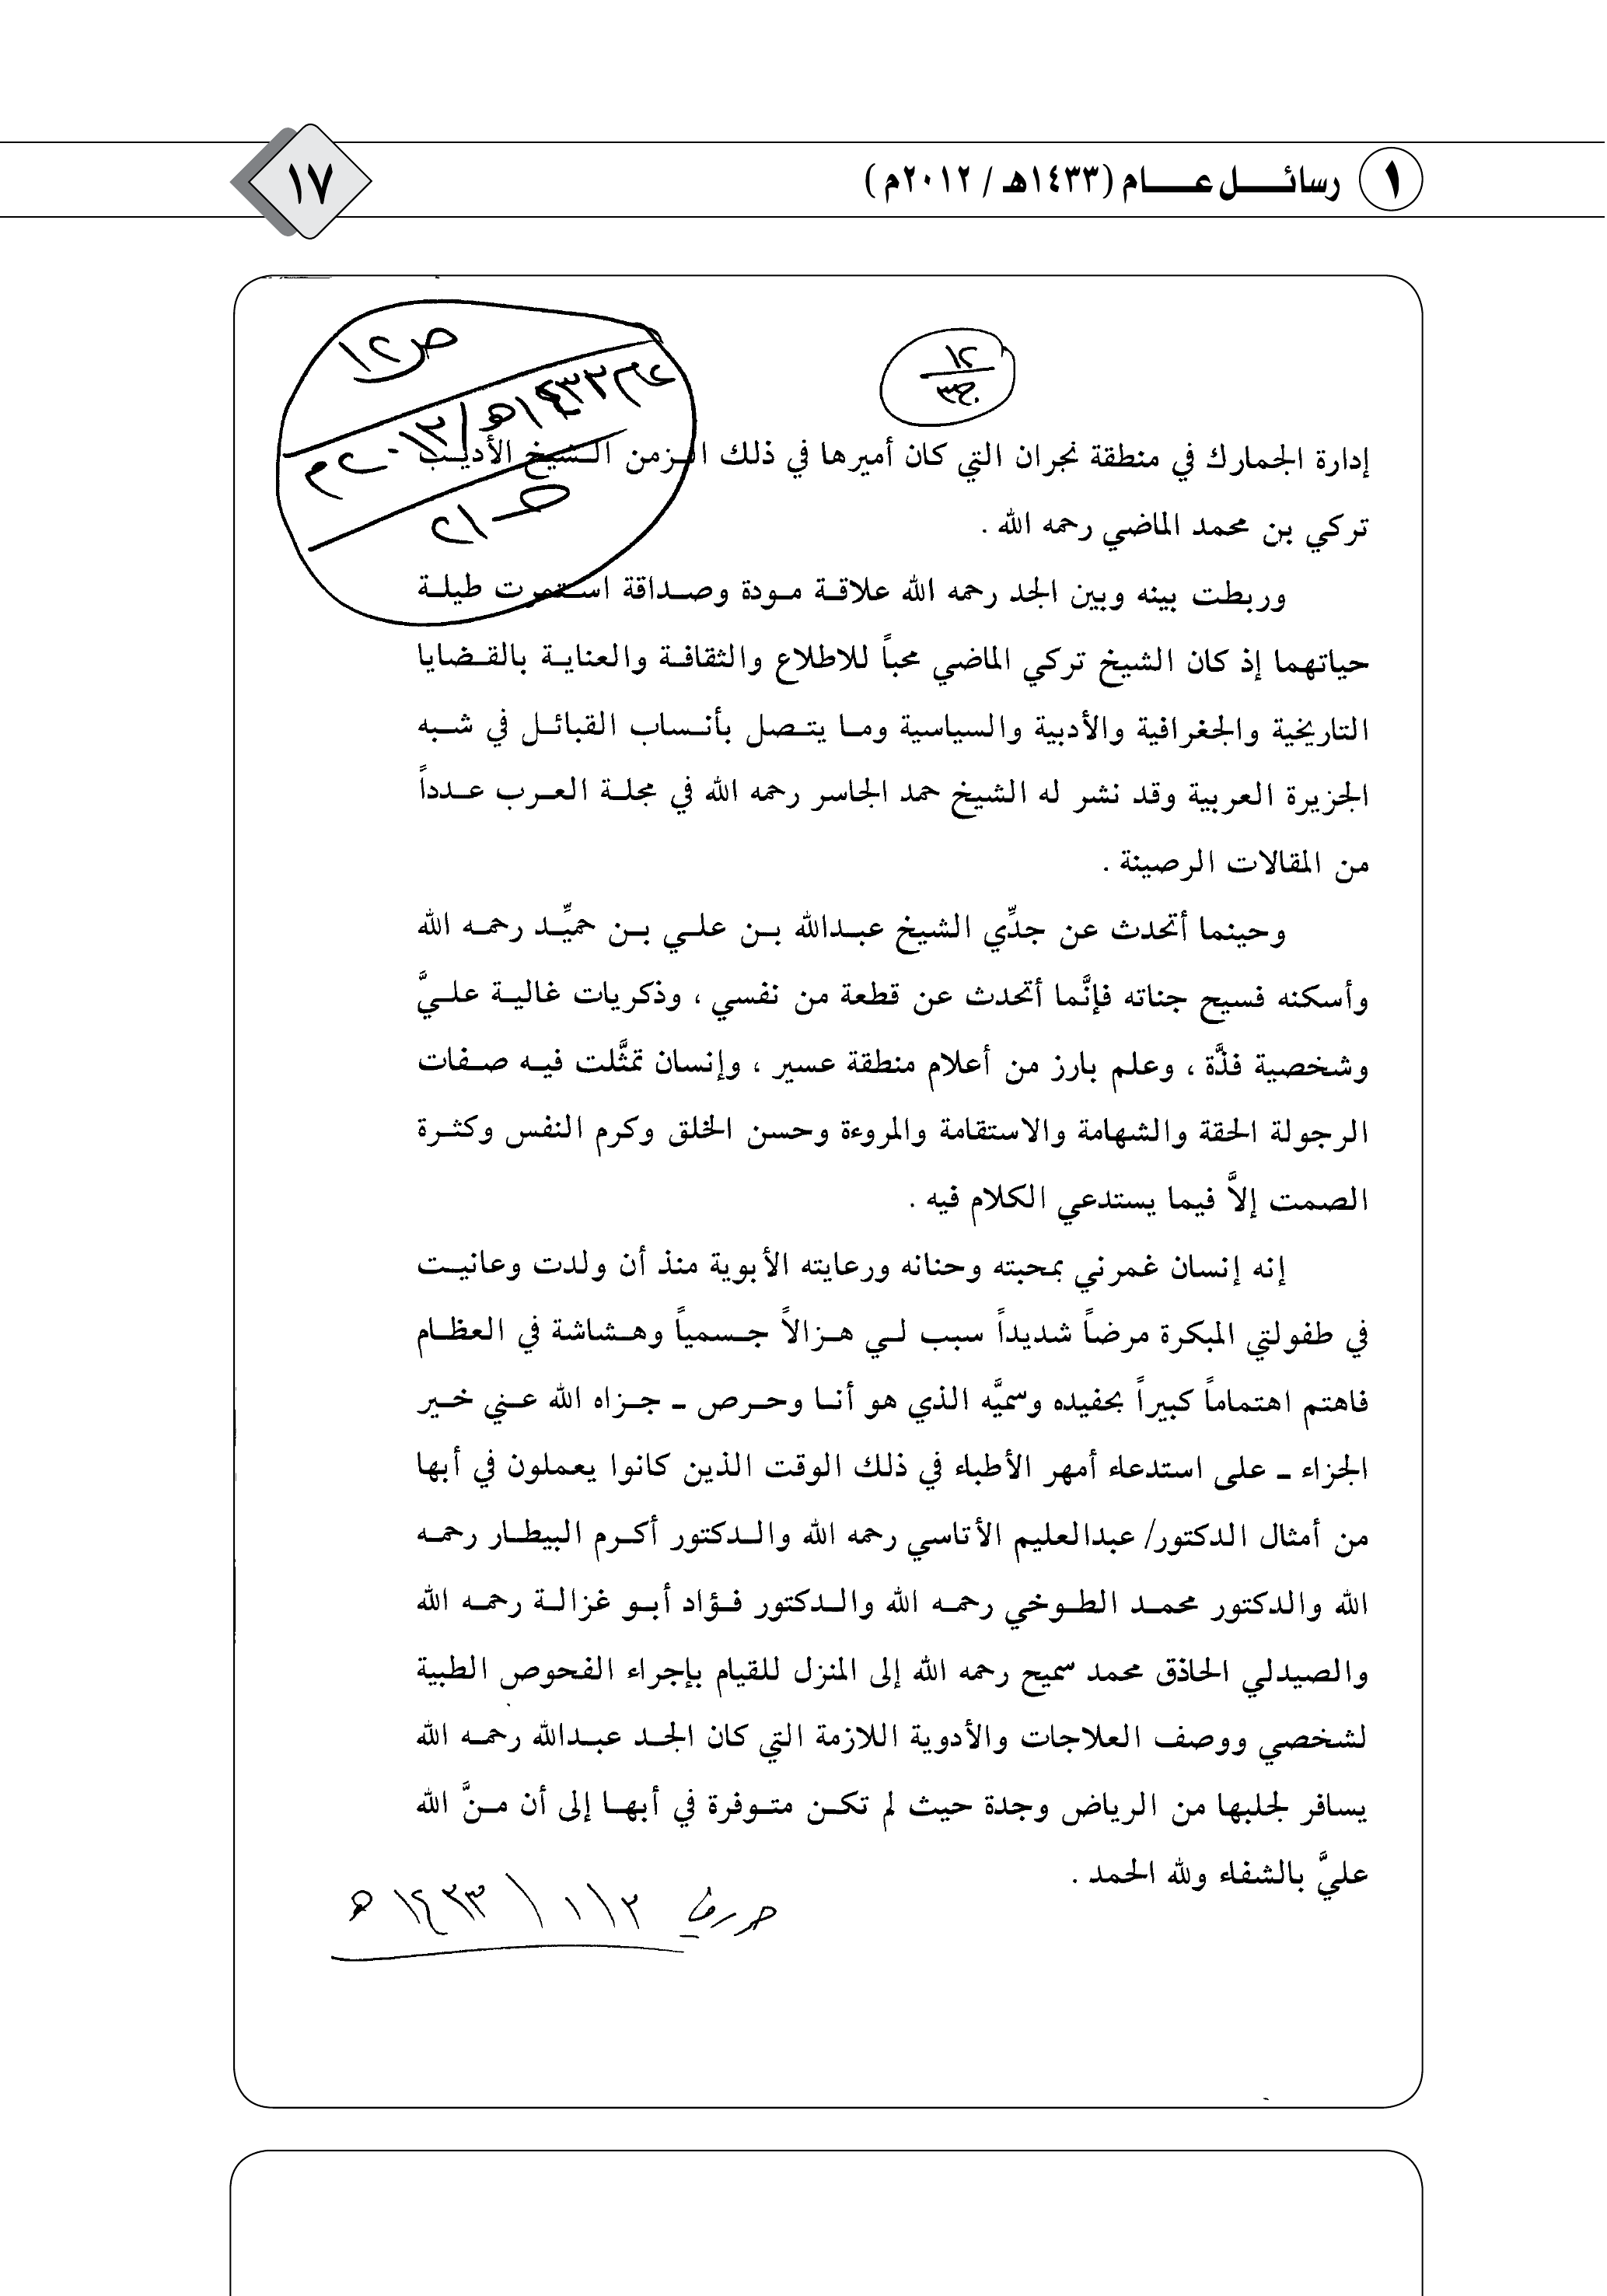 ١ رسائل عام (١٤٣٣هـ / ٢٠١٢م) ١٧
ص١٢
١٢
ج٣
عام ١٤٣٣هـ / ٢٠١٢م
إدارة الجمارك في منطقة نجران التي كان أميرها في ذلك الزمن الشيخ الأديب
تركي بن محمد الماضي رحمه الله .
وربطت بينه وبين الجد رحمه الله علاقة مودة وصداقة استمرت طيلة
حياتهما إذ كان الشيخ تركي الماضي محباً للاطلاع والثقافة والعناية بالقضايا
التاريخية والجغرافية والأدبية والسياسية وما يتصل بأنساب القبائل في شبه
الجزيرة العربية وقد نشر له الشيخ حمد الجاسر رحمه الله في مجلة العرب عدداً
من المقالات الرصينة .
وحينما أتحدث عن جدِّي الشيخ عبدالله بن علي بن حميِّد رحمه الله
وأسكنه فسيح جناته فإنَّما أتحدث عن قطعة من نفسي ، وذكريات غالية عليَّ
وشخصية فذَّة ، وعلم بارز من أعلام منطقة عسير ، وإنسان تمثَّلت فيه صفات
الرجولة الحقة والشهامة والاستقامة والمروءة وحسن الخلق وكرم النفس وكثرة
الصمت إلاَّ فيما يستدعي الكلام فيه .
إنه إنسان غمرني بمحبته وحنانه ورعايته الأبوية منذ أن ولدت وعانيت
في طفولتي المبكرة مرضاً شديداً سبب لي هزالاً جسمياً وهشاشة في العظام
فاهتم اهتماماً كبيراً بحفيده وسميَّه الذي هو أنا وحرص ـ جزاه الله عني خير
الجزاء ـ على استدعاء أمهر الأطباء في ذلك الوقت الذين كانوا يعملون في أبها
من أمثال الدكتور/ عبدالعليم الأتاسي رحمه الله والدكتور أكرم البيطار رحمه
الله والدكتور محمد الطوخي رحمه الله والدكتور فؤاد أبو غزالة رحمه الله
والصيدلي الحاذق محمد سميح رحمه الله إلى المنزل للقيام بإجراء الفحوص الطبية
لشخصي ووصف العلاجات والأدوية اللازمة التي كان الجد عبدالله رحمه الله
يسافر لجلبها من الرياض وجدة حيث لم تكن متوفرة في أبها إلى أن منَّ الله
عليَّ بالشفاء ولله الحمد .
حرر في ٢ / ١ / ١٤٣٣ هـ